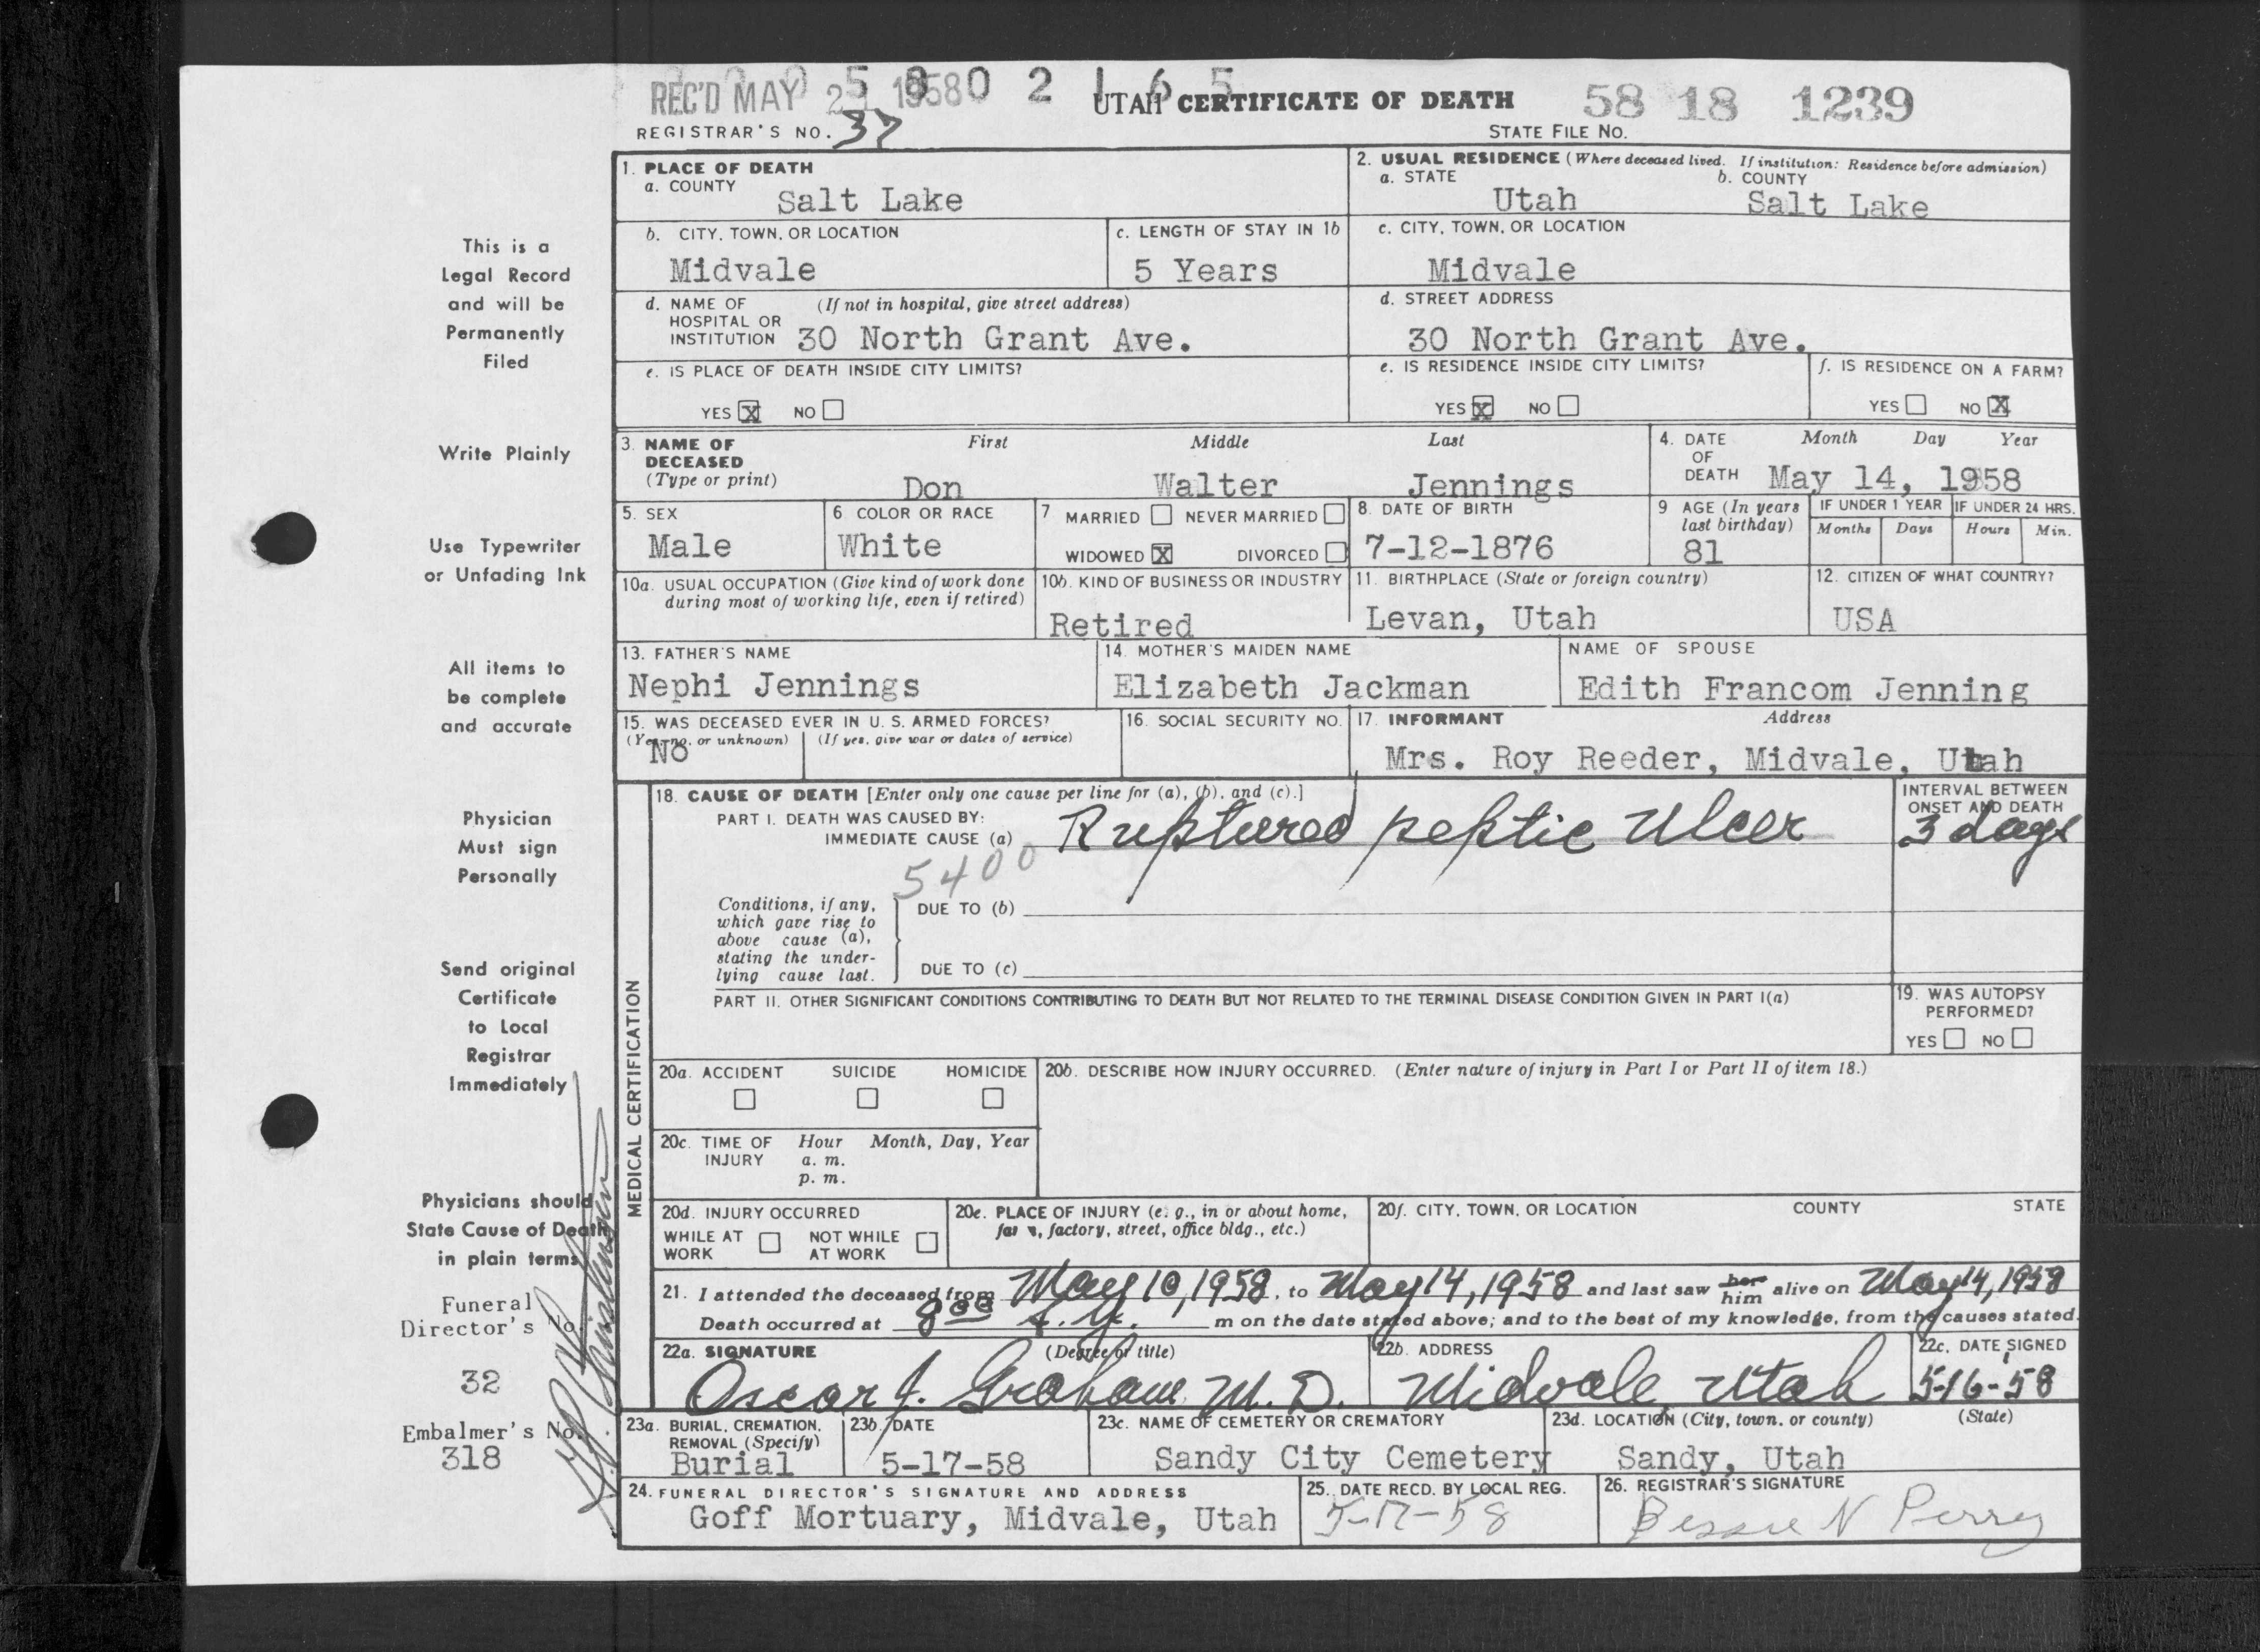 REC'D MAY 2 1958 0 2 1 6 5
UTAH CERTIFICATE OF DEATH
58 18 1239
REGISTRAR'S NO. 37
STATE FILE NO.
1. PLACE OF DEATH
a. COUNTY
Salt Lake
2. USUAL RESIDENCE (Where deceased lived. If institution: Residence before admission)
a. STATE b. COUNTY
Utah Salt Lake
b. CITY, TOWN, OR LOCATION
Midvale
c. LENGTH OF STAY IN 1b
5 Years
c. CITY, TOWN, OR LOCATION
Midvale
d. NAME OF (If not in hospital, give street address)
HOSPITAL OR
INSTITUTION 30 North Grant Ave.
d. STREET ADDRESS
30 North Grant Ave.
e. IS PLACE OF DEATH INSIDE CITY LIMITS?
YES X NO
e. IS RESIDENCE INSIDE CITY LIMITS?
YES X NO
f. IS RESIDENCE ON A FARM?
YES NO X
3. NAME OF DECEASED
(Type or print)
First Middle Last
Don Walter Jennings
4. DATE OF DEATH
Month Day Year
May 14, 1958
5. SEX
Male
6 COLOR OR RACE
White
7 MARRIED NEVER MARRIED
WIDOWED X DIVORCED
8. DATE OF BIRTH
7-12-1876
9 AGE (In years
last birthday)
81
IF UNDER 1 YEAR
Months Days
IF UNDER 24 HRS.
Hours Min.
10a. USUAL OCCUPATION (Give kind of work done
during most of working life, even if retired)
10b. KIND OF BUSINESS OR INDUSTRY
Retired
11. BIRTHPLACE (State or foreign country)
Levan, Utah
12. CITIZEN OF WHAT COUNTRY?
USA
13. FATHER'S NAME
Nephi Jennings
14. MOTHER'S MAIDEN NAME
Elizabeth Jackman
NAME OF SPOUSE
Edith Francom Jenning
15. WAS DECEASED EVER IN U. S. ARMED FORCES?
(Yes, no, or unknown) (If yes, give war or dates of service)
No
16. SOCIAL SECURITY NO.
17. INFORMANT Address
Mrs. Roy Reeder, Midvale, Utah
MEDICAL CERTIFICATION
18. CAUSE OF DEATH [Enter only one cause per line for (a), (b), and (c).]
PART I. DEATH WAS CAUSED BY:
IMMEDIATE CAUSE (a) Ruptured peptic Ulcer
INTERVAL BETWEEN
ONSET AND DEATH
3 days
5400
Conditions, if any,
which gave rise to
above cause (a),
stating the under-
lying cause last.
DUE TO (b)
DUE TO (c)
PART II. OTHER SIGNIFICANT CONDITIONS CONTRIBUTING TO DEATH BUT NOT RELATED TO THE TERMINAL DISEASE CONDITION GIVEN IN PART I(a)
19. WAS AUTOPSY
PERFORMED?
YES NO
20a. ACCIDENT SUICIDE HOMICIDE
20b. DESCRIBE HOW INJURY OCCURRED. (Enter nature of injury in Part I or Part II of item 18.)
20c. TIME OF INJURY
Hour Month, Day, Year
a. m.
p. m.
20d. INJURY OCCURRED
WHILE AT WORK NOT WHILE AT WORK
20e. PLACE OF INJURY (e. g., in or about home,
farm, factory, street, office bldg., etc.)
20f. CITY, TOWN, OR LOCATION COUNTY STATE
21. I attended the deceased from May 10, 1958, to May 14, 1958 and last saw her him alive on May 14, 1958
Death occurred at 8 00 m on the date stated above; and to the best of my knowledge, from the causes stated.
22a. SIGNATURE (Degree or title)
Oscar J. Graham M. D.
22b. ADDRESS
Midvale, Utah
22c. DATE SIGNED
5-16-58
23a. BURIAL, CREMATION,
REMOVAL (Specify)
Burial
23b. DATE
5-17-58
23c. NAME OF CEMETERY OR CREMATORY
Sandy City Cemetery
23d. LOCATION (City, town, or county) (State)
Sandy, Utah
24. FUNERAL DIRECTOR'S SIGNATURE AND ADDRESS
Goff Mortuary, Midvale, Utah
25. DATE RECD. BY LOCAL REG.
5-17-58
26. REGISTRAR'S SIGNATURE
Bessie N Perry
This is a
Legal Record
and will be
Permanently
Filed
Write Plainly
Use Typewriter
or Unfading Ink
All items to
be complete
and accurate
Physician
Must sign
Personally
Send original
Certificate
to Local
Registrar
Immediately
Physicians should
State Cause of Death
in plain terms
Funeral
Director's No.
32
Embalmer's No.
318